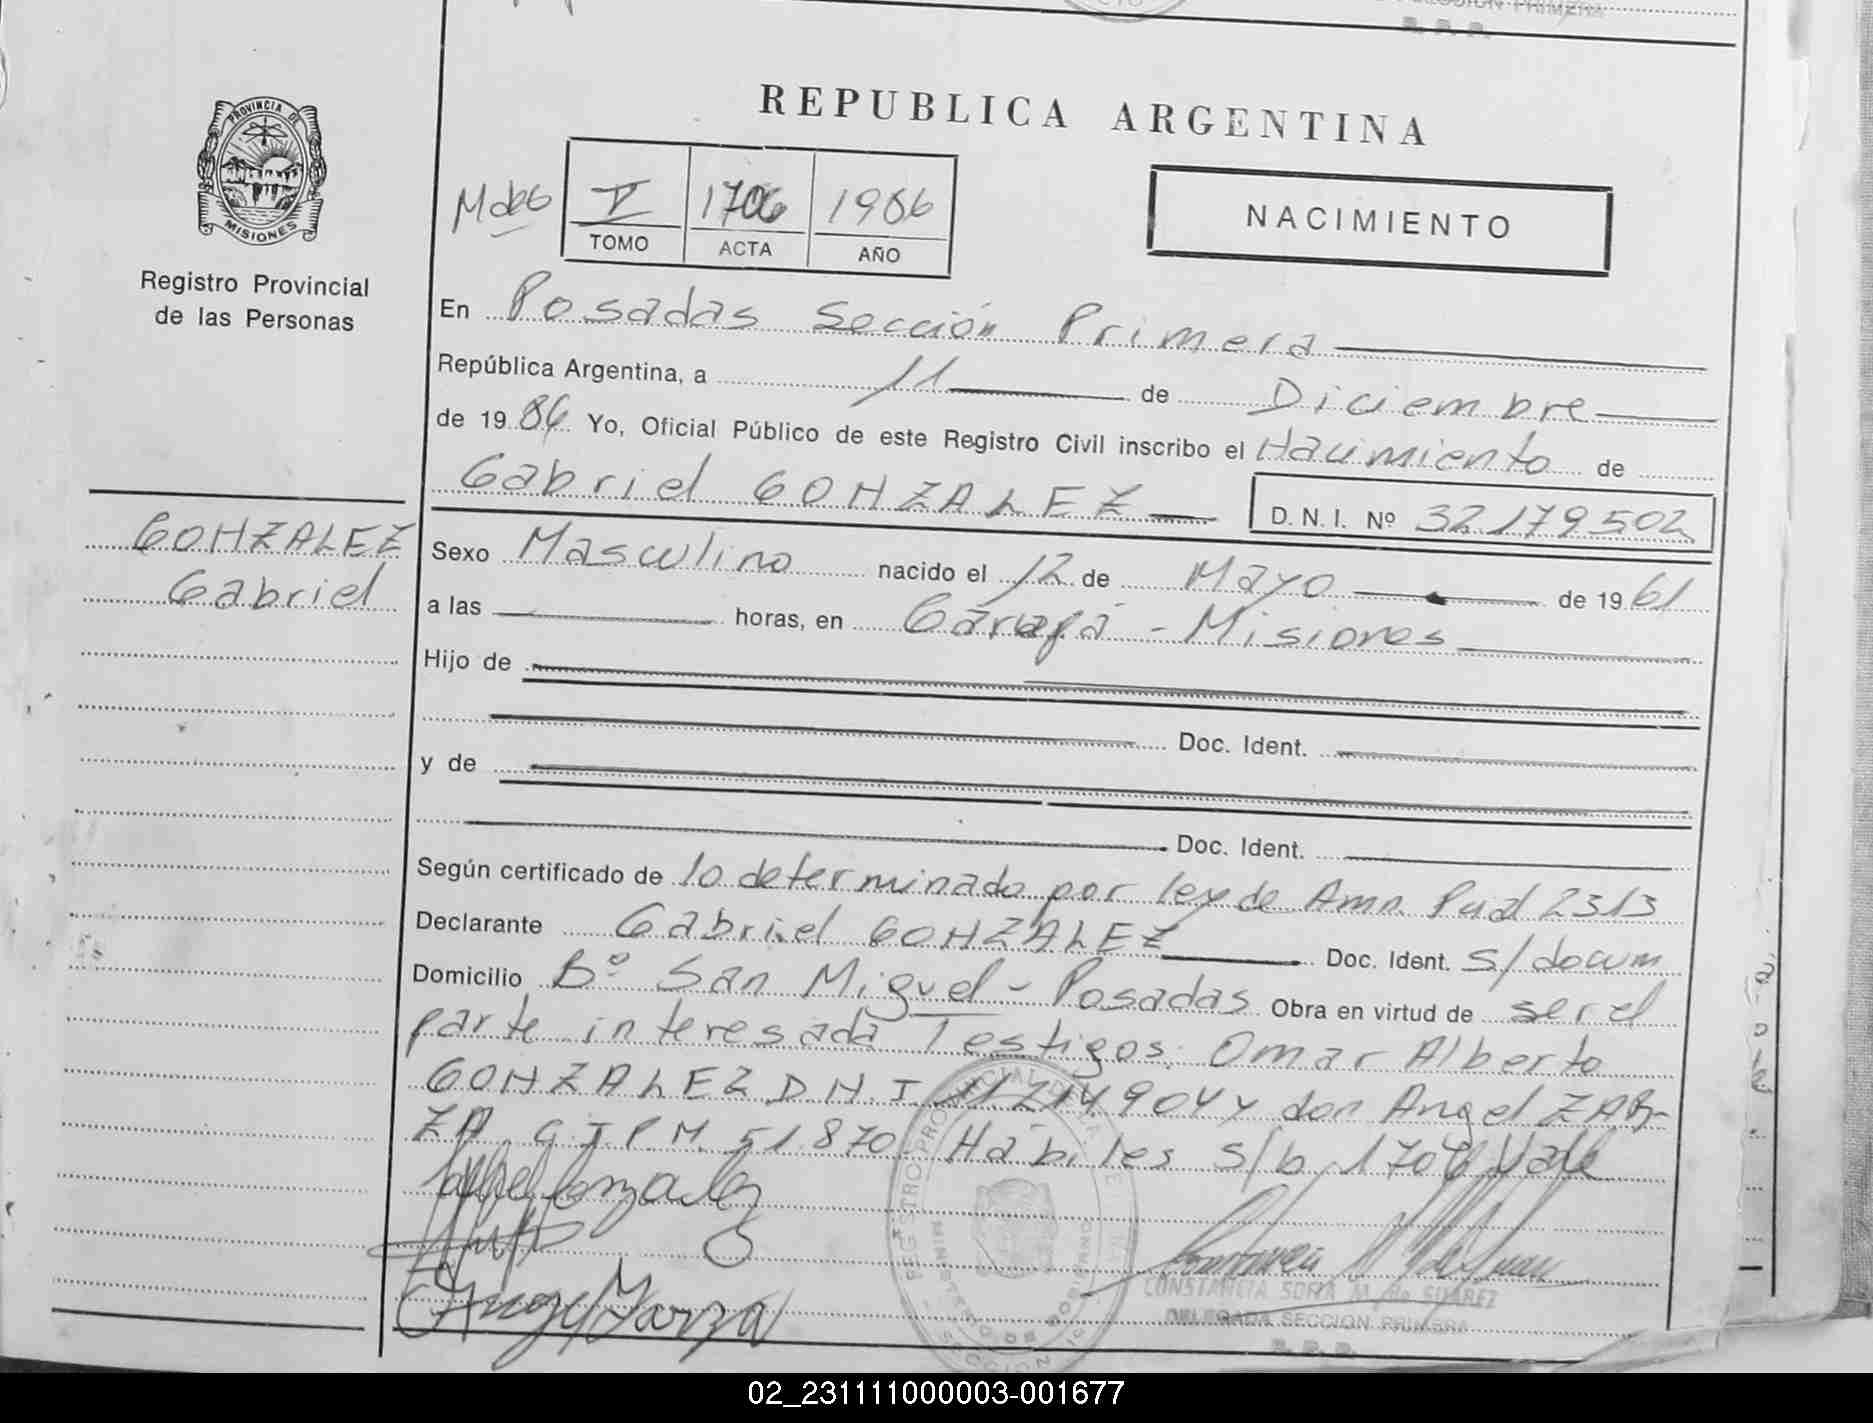 REPUBLICA ARGENTINA
PROVINCIA DE
MISIONES
Registro Provincial
de las Personas
V
TOMO
1706
ACTA
1986
AÑO
NACIMIENTO
En Posadas Sección Primera
República Argentina, a 11 de Diciembre
de 1986 Yo, Oficial Público de este Registro Civil inscribo el Nacimiento de
Gabriel GONZALEZ
D.N.I. Nº 32.179.502
GONZALEZ
Gabriel
Sexo Masculino nacido el 12 de Mayo de 1961
a las horas, en Garupá - Misiones
Hijo de
Doc. Ident.
y de
Doc. Ident.
Según certificado de lo determinado por ley de Amn. 2313
Declarante Gabriel GONZALEZ Doc. Ident. s/docum
Domicilio Bº San Miguel - Posadas Obra en virtud de ser el
parte interesada Testigos: Omar Alberto
GONZALEZ D.N.I. y don Angel ZAR-
ZA C.I.P.M. 51.870 Hábiles s/b 1706 Vale
CONSTANCIA SOFIA M. de SUAREZ
DELEGADA SECCION PRIMERA
R. P. P.
02_231111000003-001677